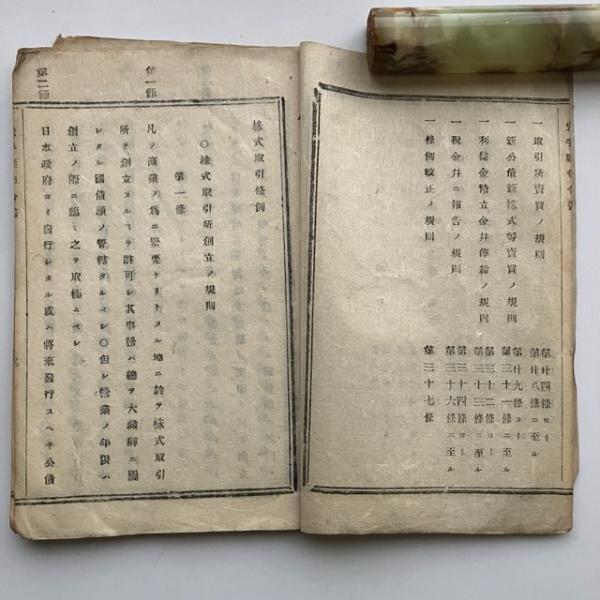 一取引所賣買ノ規則
第廿四條ヨリ
第廿八條ニ至ル
一新公債新株式等賣買ノ規則
第廿九條ヨリ
第三十一條ニ至ル
一利益金積立金幷俸給ノ規則
第三十二條ヨリ
第三十三條ニ至ル
一税金幷ニ報告ノ規則
第三十四條ヨリ
第三十六條ニ至ル
一條例改正ノ規則
第三十七條
株式取引條例
○株式取引所創立ノ規則
第一條
第一節
凡ソ商業ノ爲ニ緊要ナリトスル地ニ於テ株式取引
所ヲ創立スルヿヲ許可シ其事務ハ總テ大藏卿ニ屬
シタル國債頭ノ管轄タルベシ○但シ營業ノ年限ハ
創立ノ際ニ臨ミ之ヲ取極ムベシ
第二節
日本政府ヨリ發行シタル或ハ將來發行スヘキ公債